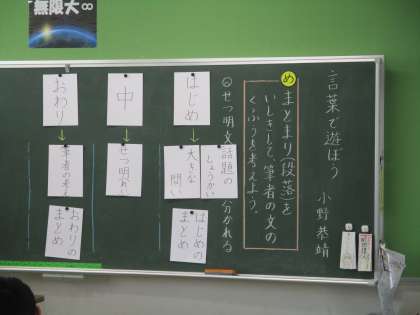 無限大∞
言葉で遊ぼう
小野恭靖
め
まとまり(段落)を
いしきして、筆者の文の
くふうを考えよう。
はじめ
話題の
しょうかい
大きな
問い
はじめの
まとめ
中
せつ明
おわり
筆者の考え
おわりの
まとめ